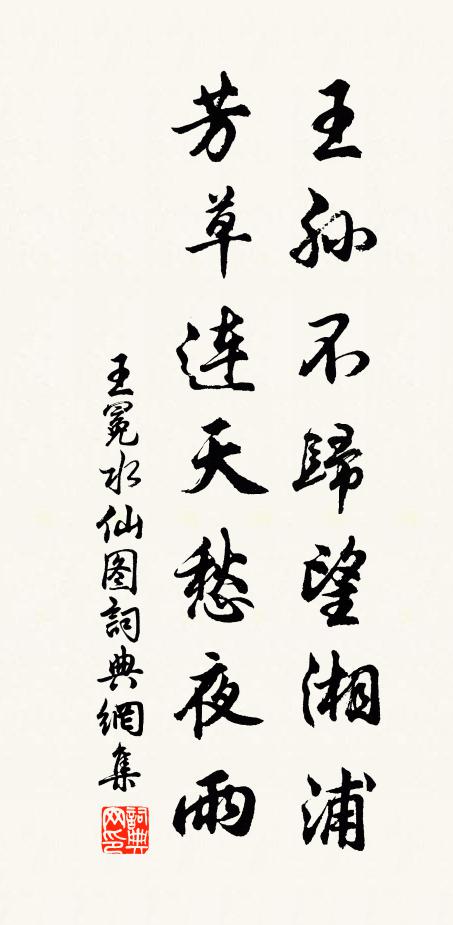 王孙不歸望湘浦
芳草連天愁夜雨
王冕水仙图詞典網集
詞典网印